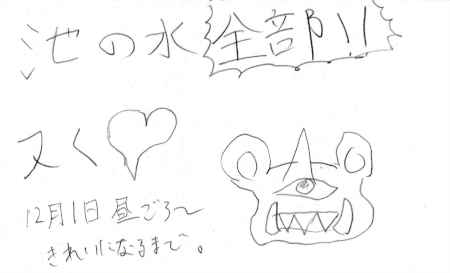 池の水全部!!
ヌく♡
12月1日昼ごろ〜
きれいになるまで。